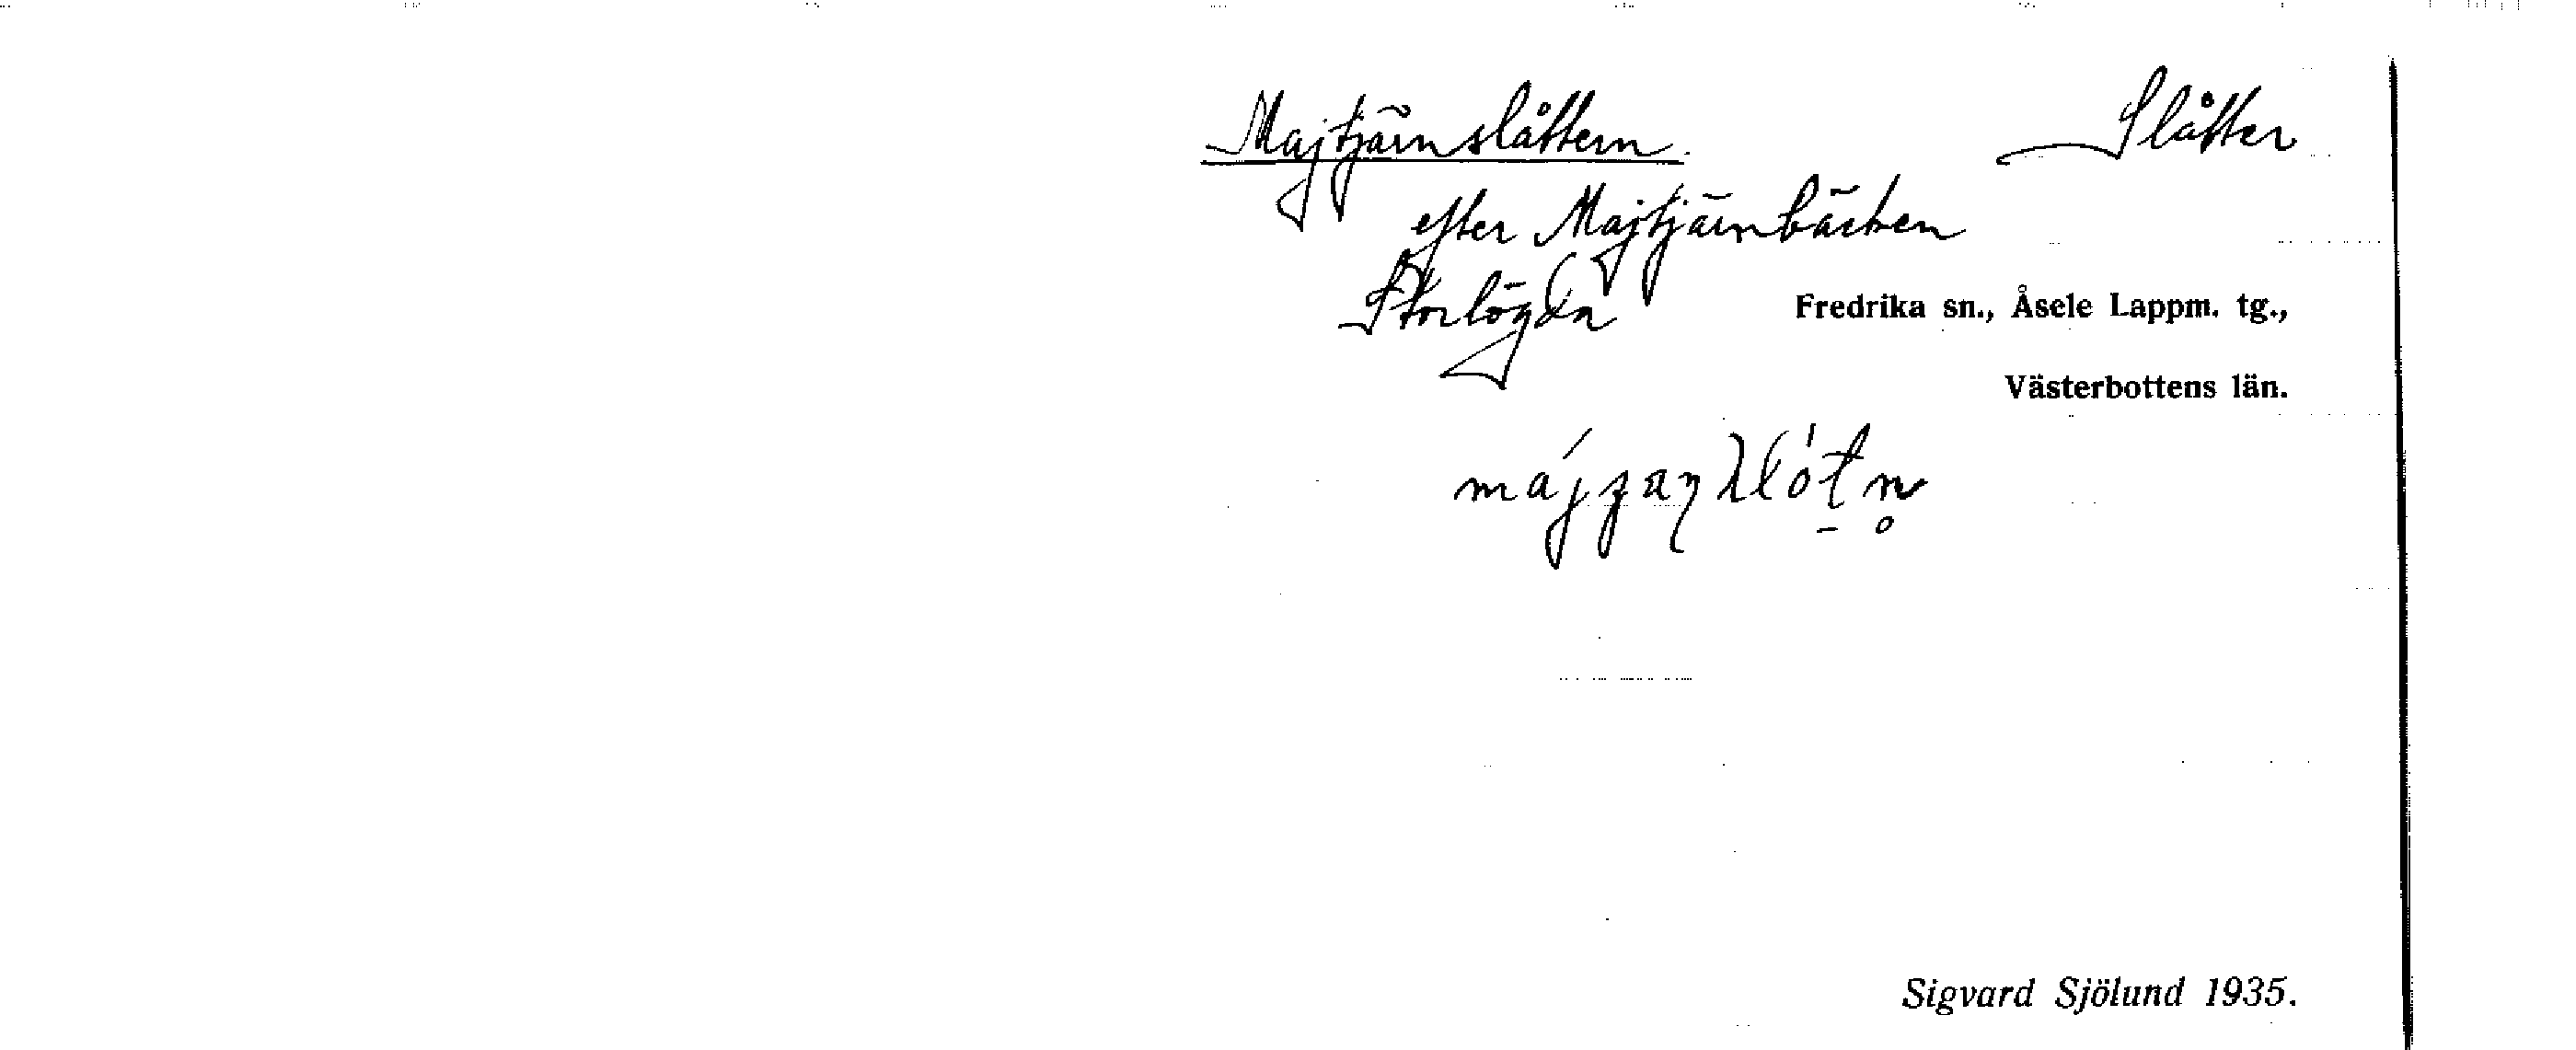 Majtjärnslåttern. Slåtter
efter Majtjärnbäcken
Storlögda Fredrika sn., Åsele Lappm. tg.,
Västerbottens län.
Sigvard Sjölund 1935.